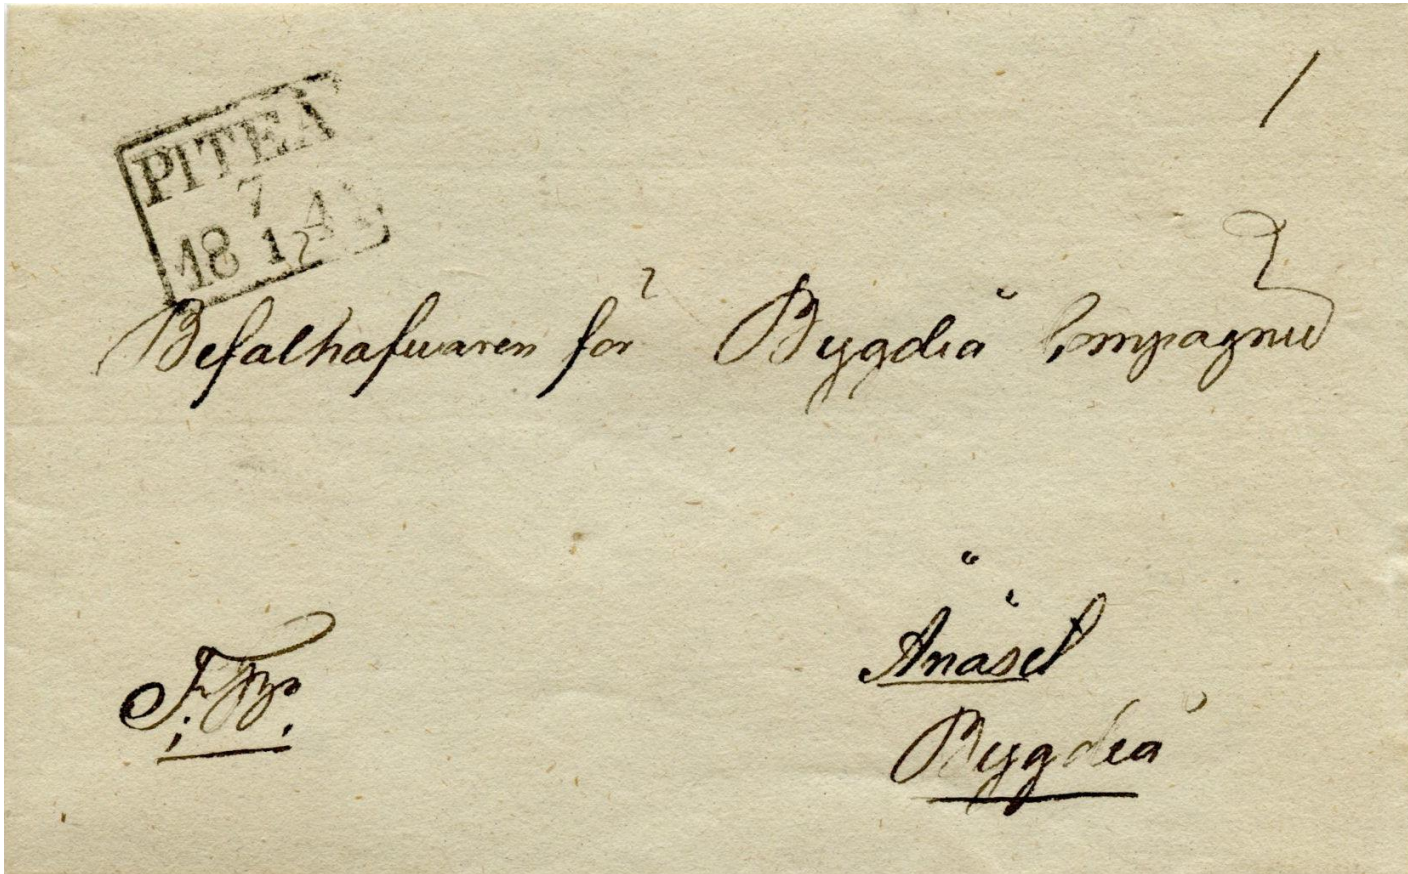 PITEÅ
7
18 12 4
1
2
Befälhafwaren för Bygdeå Compagnie
Ånäset
F. Br.
Bygdeå